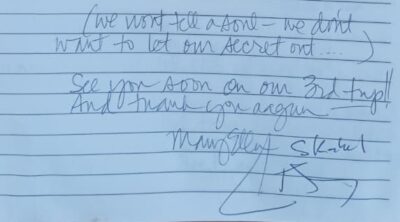 (we won't tell a soul - we don't
want to let our secret out....)
See you soon on our 3rd trip!!
And thank you again
Mary Ellen